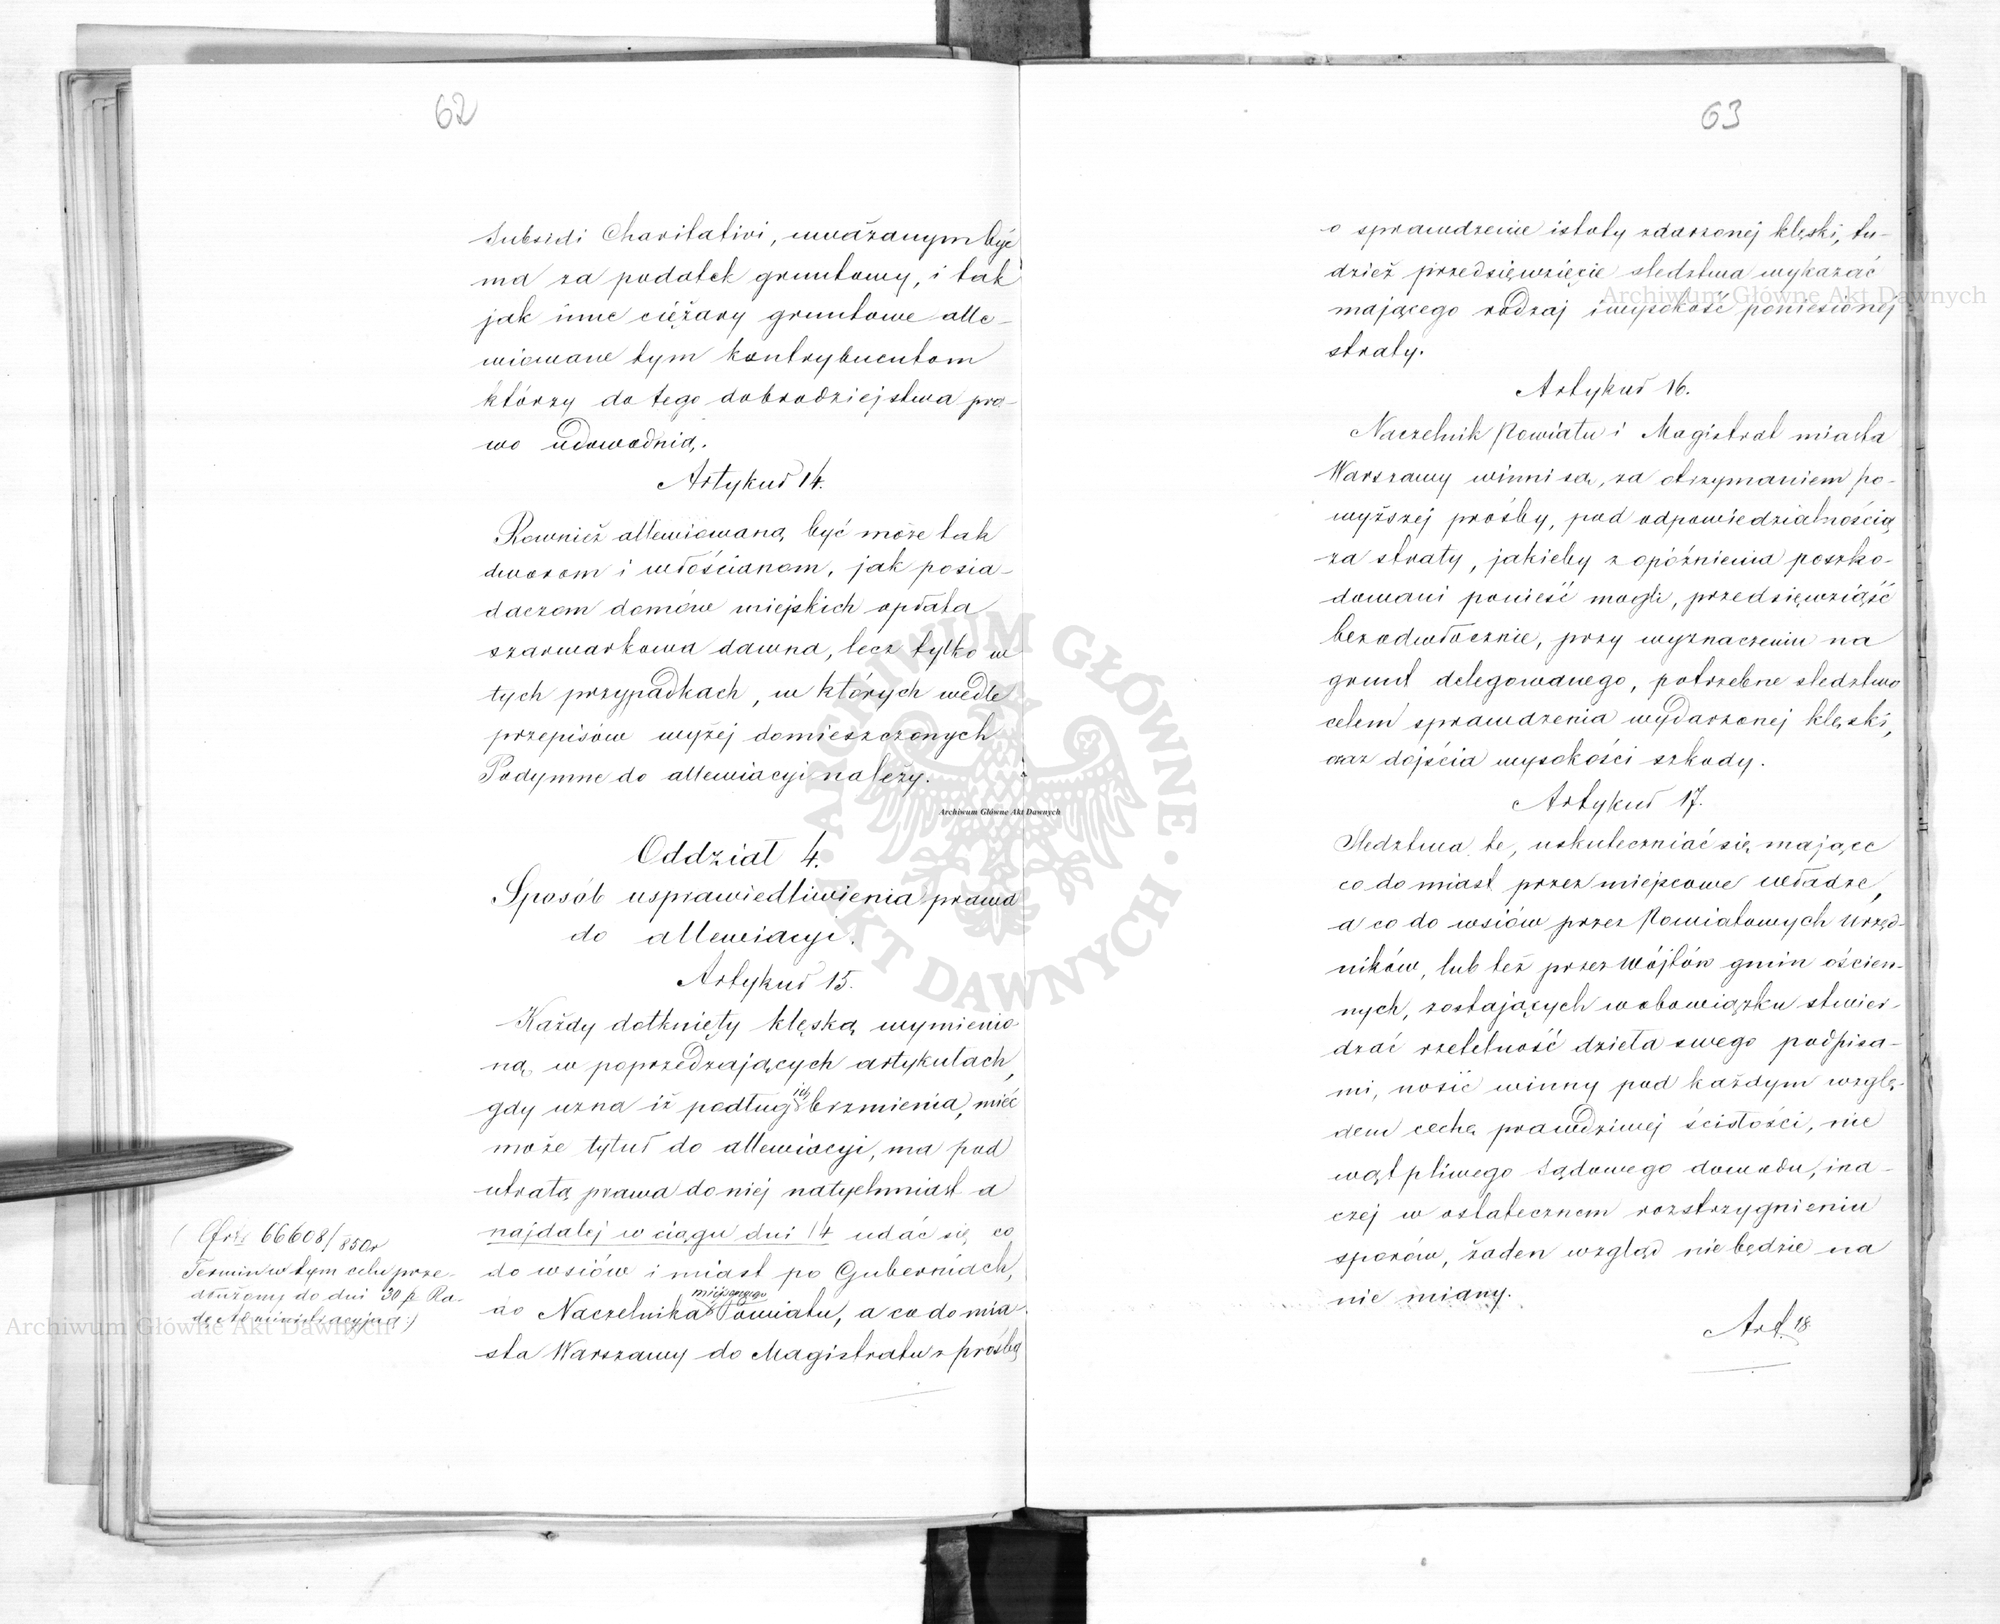 62
Subsidi Charitativi, uważanym być
ma za podatek gruntowy, i tak
jak inne ciężary gruntowe alle-
wiowane tym kontrybuentom
którzy do tego dobrodziejstwa pra-
wo udowodnią.
Artykuł 14.
Rownież allewiowaną być może tak
dworom i włościanom, jak posia-
daczom domów miejskich opłata
szarwarkowa dawna, lecz tylko w
tych przypadkach, w których wedle
przepisów wyżej domieszczonych
Podymne do allewiacyi należy.
Oddział 4.
Sposób usprawiedliwienia prawa
do allewiacyi.
Artykuł 15.
Każdy dotknięty klęską wymienio-
ną w poprzedzających artykułach,
gdy uzna iż podług ich brzmienia, mieć
może tytuł do allewiacyi, ma pod
utratą prawa do niej natychmiast a
najdalej w ciągu dni 14 udać się, co
do wsiów i miast po Guberniach,
do Naczelnika miejscowego Powiatu, a co do mia-
sta Warszawy do Magistratu z prośbą
66608/850r
Termin w tym celu prze-
dłużony do dni 30 p. Ra-
dę Administracyjną:)
63
o sprawdzenie istoty zdarzonej klęski, tu-
dzież przedsięwzięcie śledztwa wykazać
mającego rodzaj i wysokość poniesionej
straty.
Artykuł 16.
Naczelnik Powiatu i Magistrat miasta
Warszawy winni są, za otrzymaniem po-
wyższej prośby, pod odpowiedzialnością
za straty, jakieby z opóźnienia poszko-
dowani ponieść mogli, przedsięwziąść
bezodwłocznie, przy wyznaczeniu na
grunt delegowanego, potrzebne śledztwo
celem sprawdzenia wydarzonej klęski,
oraz dojścia wysokości szkody.
Artykuł 17.
Sledztwa te, uskuteczniać się mające
co do miast przez miejscowe władze,
a co do wsiów przez Powiatowych Urzęd-
ników, lub też przez Wójtów gmin ościen-
nych, zostających w obowiązku stwier-
dzać rzetelność dzieła swego podpisa-
mi, nosić winny pod każdym wzglę-
dem cechę prawdziwej ścisłości, nie
wątpliwego Sądowego dowodu, ina-
czej w ostatecznem rozstrzygnieniu
sporów, żaden wzgląd nie będzie na
nie miany.
Art. 18.
Archiwum Główne Akt Dawnych
Archiwum Główne Akt Dawnych
Archiwum Główne Akt Dawnych
ARCHIWUM GŁÓWNE AKT DAWNYCH